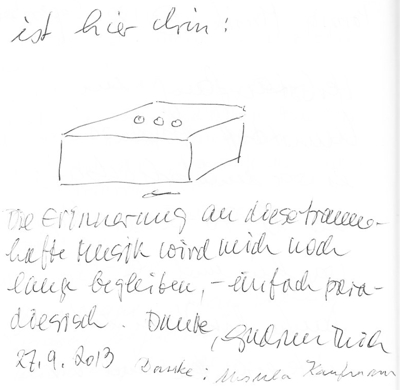 ist hier drin:
Die Erinnerung an diese traum-
hafte Musik wird mich noch
lange begleiten, - einfach para-
diesisch. Danke, Gudrun
27.9.2013 Danke: Ursula Kaufmann